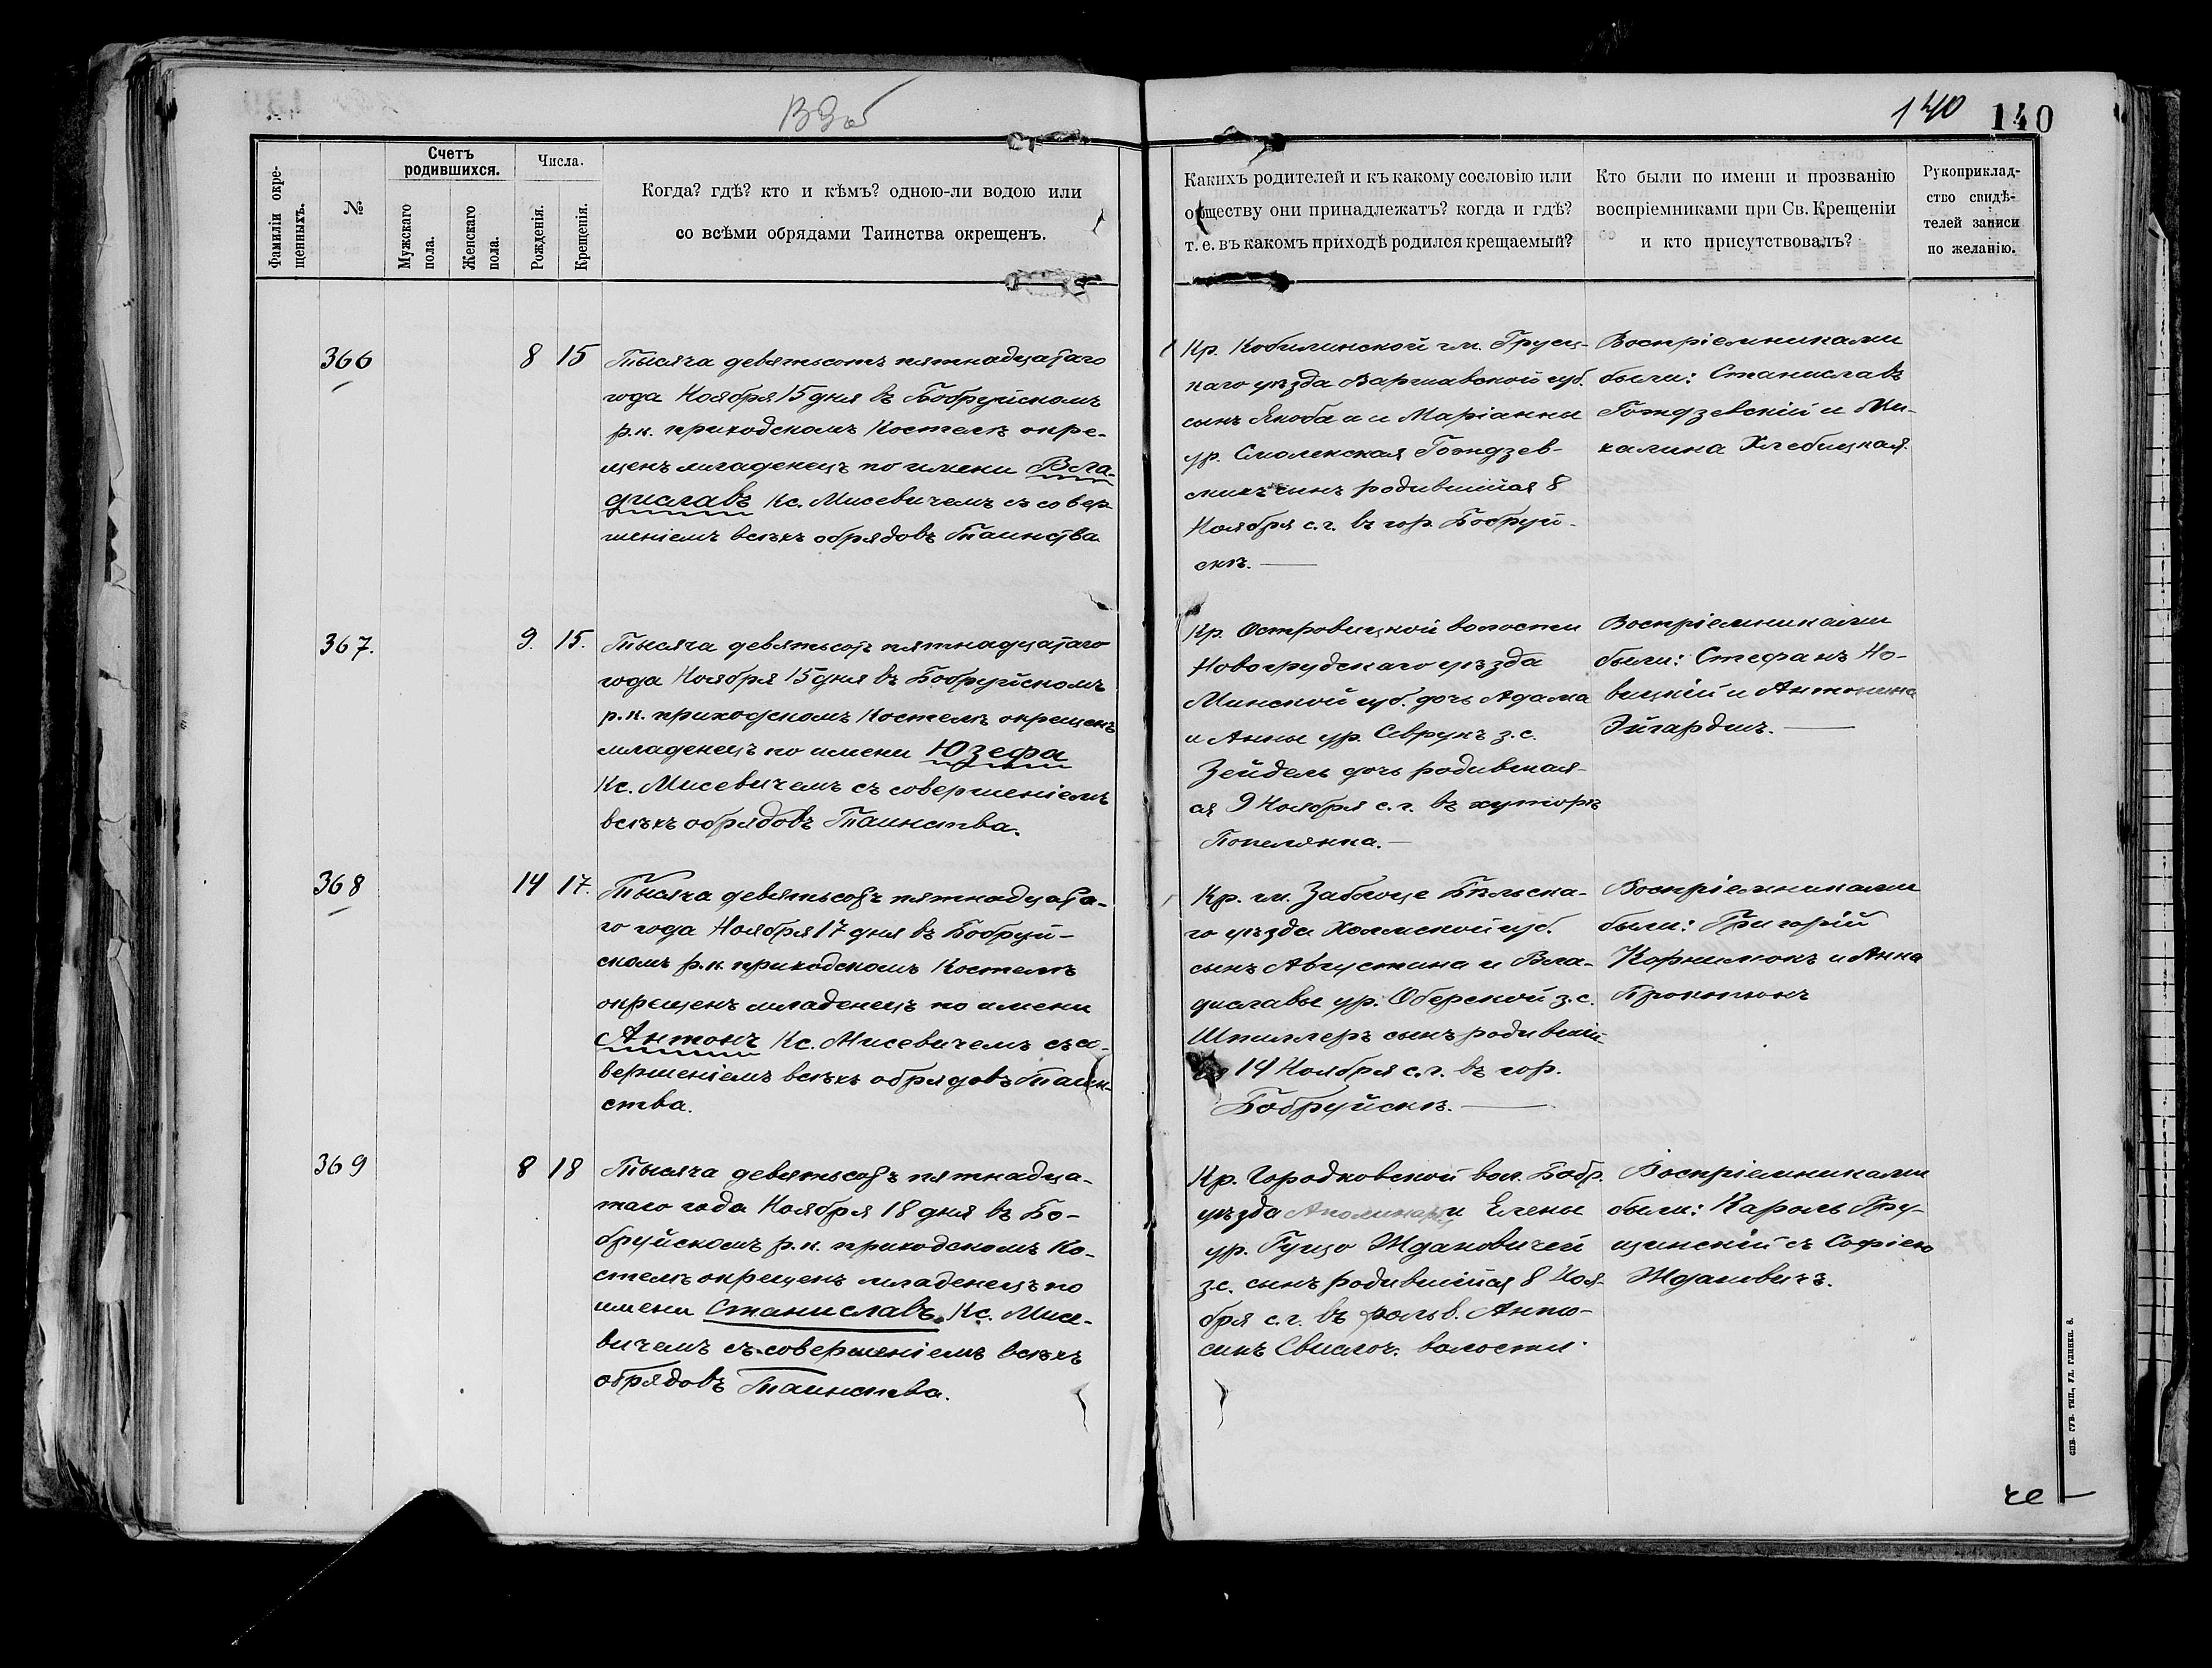 140 140
Фамиліи окре-
щенныхъ.
№
Счетъ
родившихся.
Мужскаго
пола.
Женскаго
пола.
Числа.
Рожденія.
Крещенія.
Когда? гдѣ? кто и кѣмъ? одною-ли водою или
со всѣми обрядами Таинства окрещенъ.
Какихъ родителей и къ какому сословію или
обществу они принадлежатъ? когда и гдѣ?
т. е. въ какомъ приходѣ родился крещаемый?
Кто были по имени и прозванію
воспріемниками при Св. Крещеніи
и кто присутствовалъ?
Рукоприклад-
ство свидѣ-
телей записи
по желанію.
366 8 15
Тысяча девятьсотъ пятнадцатаго
года Ноября 15 дня въ Бобруйскомъ
р.к. приходскомъ Костелѣ окре-
щенъ младенецъ по имени Вла-
диславъ Кс. Мисевичемъ съ совер-
шеніемъ всѣхъ обрядовъ Таинства.
Кр. Кобылинской гм. Груец-
каго уѣзда Варшавской губ.
сынъ Якоба и Маріанны
ур. Смоленская Гождзев-
скихъ сынъ родившійся 8
Ноября с.г. въ гор. Бобруй-
скѣ. —
Воспріемниками
были: Станиславъ
Гождзевскій и Ми-
халина Хлебицкая.
367. 9. 15.
Тысяча девятьсотъ пятнадцатаго
года Ноября 15 дня въ Бобруйскомъ
р.к. приходскомъ Костелѣ окрещенъ
младенецъ по имени Юзефа
Кс. Мисевичемъ съ совершеніемъ
всѣхъ обрядовъ Таинства.
Кр. Островицкой волости
Новогрудскаго уѣзда
Минской губ. дочь Адама
и Анны ур. Севрукъ з.с.
Зейдель дочь родившая-
ся 9 Ноября с.г. въ хуторѣ
Попелянка. —
Воспріемниками
были: Стефанъ Но-
вицкій и Антонина
Эйгардтъ. —
368 14 17.
Тысяча девятьсотъ пятнадцата-
го года Ноября 17 дня въ Бобруй-
скомъ р.к. приходскомъ Костелѣ
окрещенъ младенецъ по имени
Антонъ Кс. Мисевичемъ съ со-
вершеніемъ всѣхъ обрядовъ Таин-
ства.
Кр. гм. Заблоце Бѣльска-
го уѣзда Холмской губ.
сынъ Августина и Вла-
диславы ур. Оберской з.с.
Шпиллеръ сынъ родившій-
ся 14 Ноября с.г. въ гор.
Бобруйскѣ. —
Воспріемниками
были: Григорій
Корнилюкъ и Анна
Прокопюкъ
369 8 18
Тысяча девятьсотъ пятнадца-
таго года Ноября 18 дня въ Бо-
бруйскомъ р.к. приходскомъ Ко-
стелѣ окрещенъ младенецъ по
имени Станиславъ Кс. Мисе-
вичемъ съ совершеніемъ всѣхъ
обрядовъ Таинства.
Кр. Городковской вол. Бобр.
уѣзда Аполинарія и Елены
ур. Гуцо Ждановичей
з.с. сынъ родившійся 8 Ноя-
бря с.г. въ фольв. Анто-
синъ Свислоч. волости.
Воспріемниками
были: Кароль Гру-
щинскій съ Софіею
Жданович.
СПБ. ГУБ. ТИП., УЛ. ГЛИНКИ. 8.